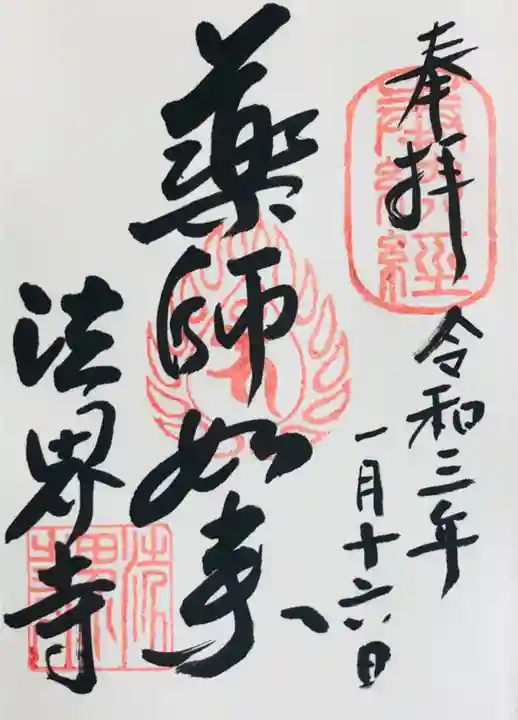 奉拝
令和三年
一月十六日
薬師如来
法界寺
奉納経